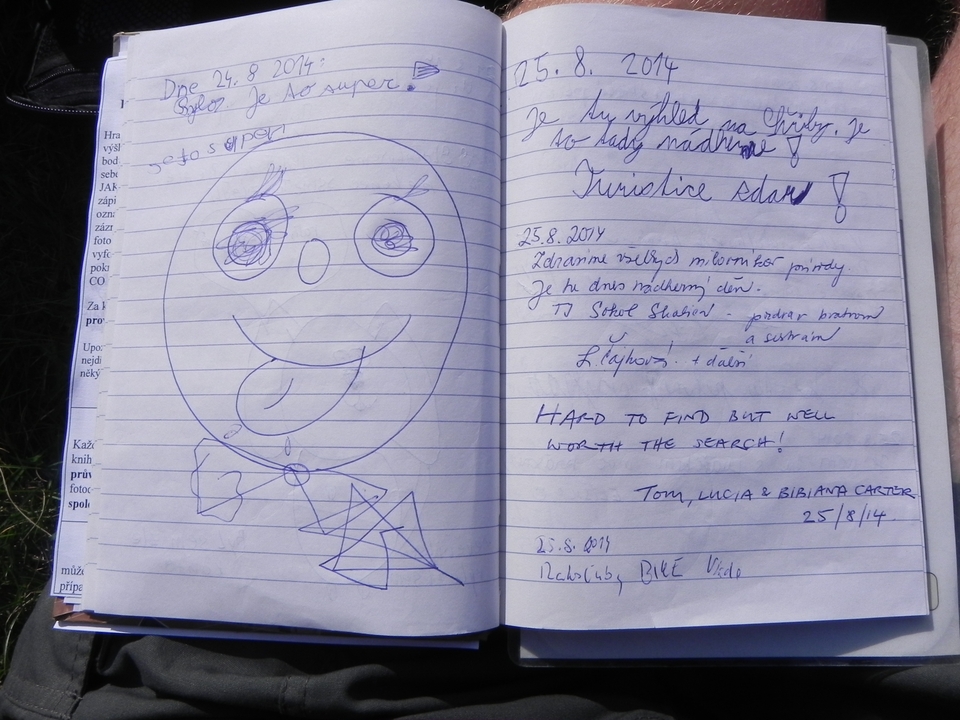 Dne 24. 8 2014:
je to super!
je to super
25. 8. 2014
Je tu výhled na Chřiby. Je
to tady nádherne !
Turistice zdar !
25.8.2014
Zdravíme všechny přírody.
Je tu dnes nádherný den.
TJ Sokol - pozdrav bratrům
a sestrám
+ další
HARD TO FIND BUT WELL
WORTH THE SEARCH!
TOM, LUCIA & BIBIANA CARTER
25/8/14
25.8. 2014
BIKE
Hra
výš
bod
sebe
JAK
zápi
ozna
zázr
foto
vyfo
pokr
CO
Za k
prov
Upoz
nejdi
něký
Každ
knih
prův
fotod
spole
může
přípa